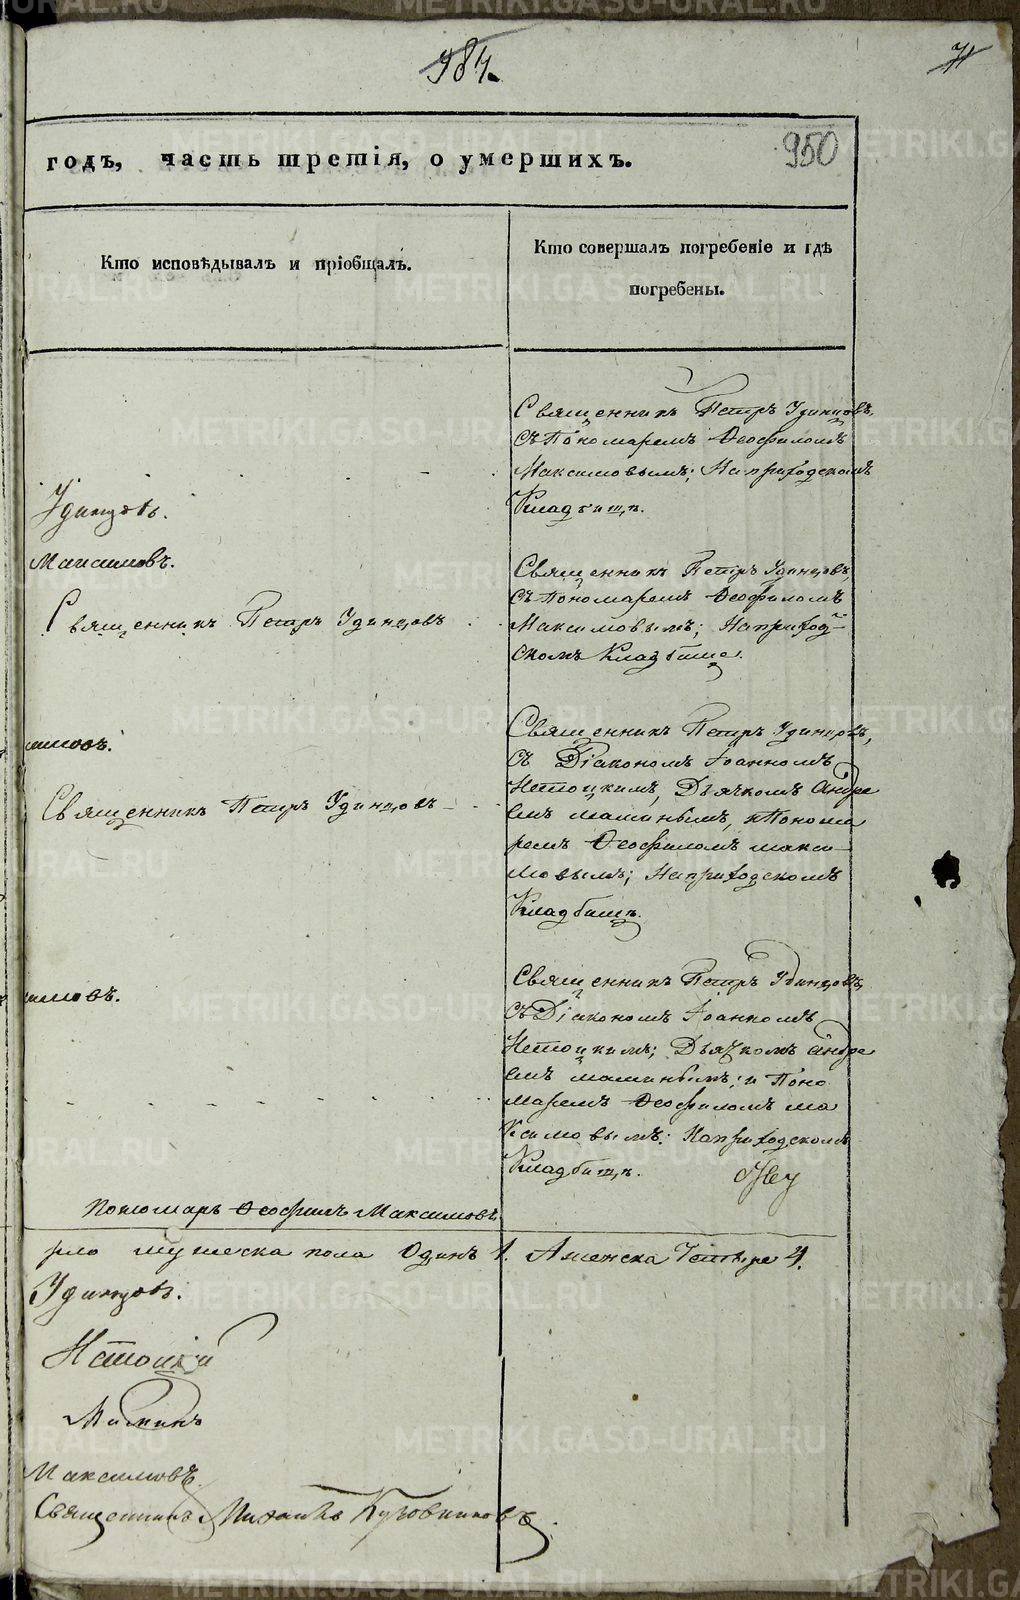 984.
71
950
годъ, часть третія, о умершихъ.
Кто исповѣдывалъ и пріобщалъ.
Кто совершалъ погребеніе и гдѣ
погребены.
Священникъ Петръ Удинцовъ,
съ Пономаремъ Ѳеофиломъ
Максимовымъ; На приходскомъ
Кладбищѣ.
Удинцовъ.
Максимовъ.
Священникъ Петръ Удинцовъ
Священникъ Петръ Удинцовъ,
съ Пономаремъ Ѳеофиломъ
Максимовымъ; На приход-
скомъ Кладбище.
симовъ.
Священникъ Петръ Удинцовъ
Священникъ Петръ Удинцовъ,
съ Діакономъ Іоанномъ
Дьячкомъ Андре
емъ маминымъ, и Понома
ремъ Ѳеофиломъ макси
мовымъ; На приходскомъ
Кладбищѣ.
симовъ.
Священникъ Петръ Удинцовъ,
съ Діакономъ Іоанномъ
Дьячкомъ Андре
емъ маминымъ; и Поно
маремъ Ѳеофиломъ ма
ксимовымъ: На приходскомъ
Кладбищѣ.
Пономарь Ѳеофилъ Максимовъ
рло мужеска пола Одинъ 1. А женска Четыре 4.
Удинцовъ.
Маминъ
Максимовъ.
Священникъ Михаилъ
METRIKI.GASO-URAL.RU